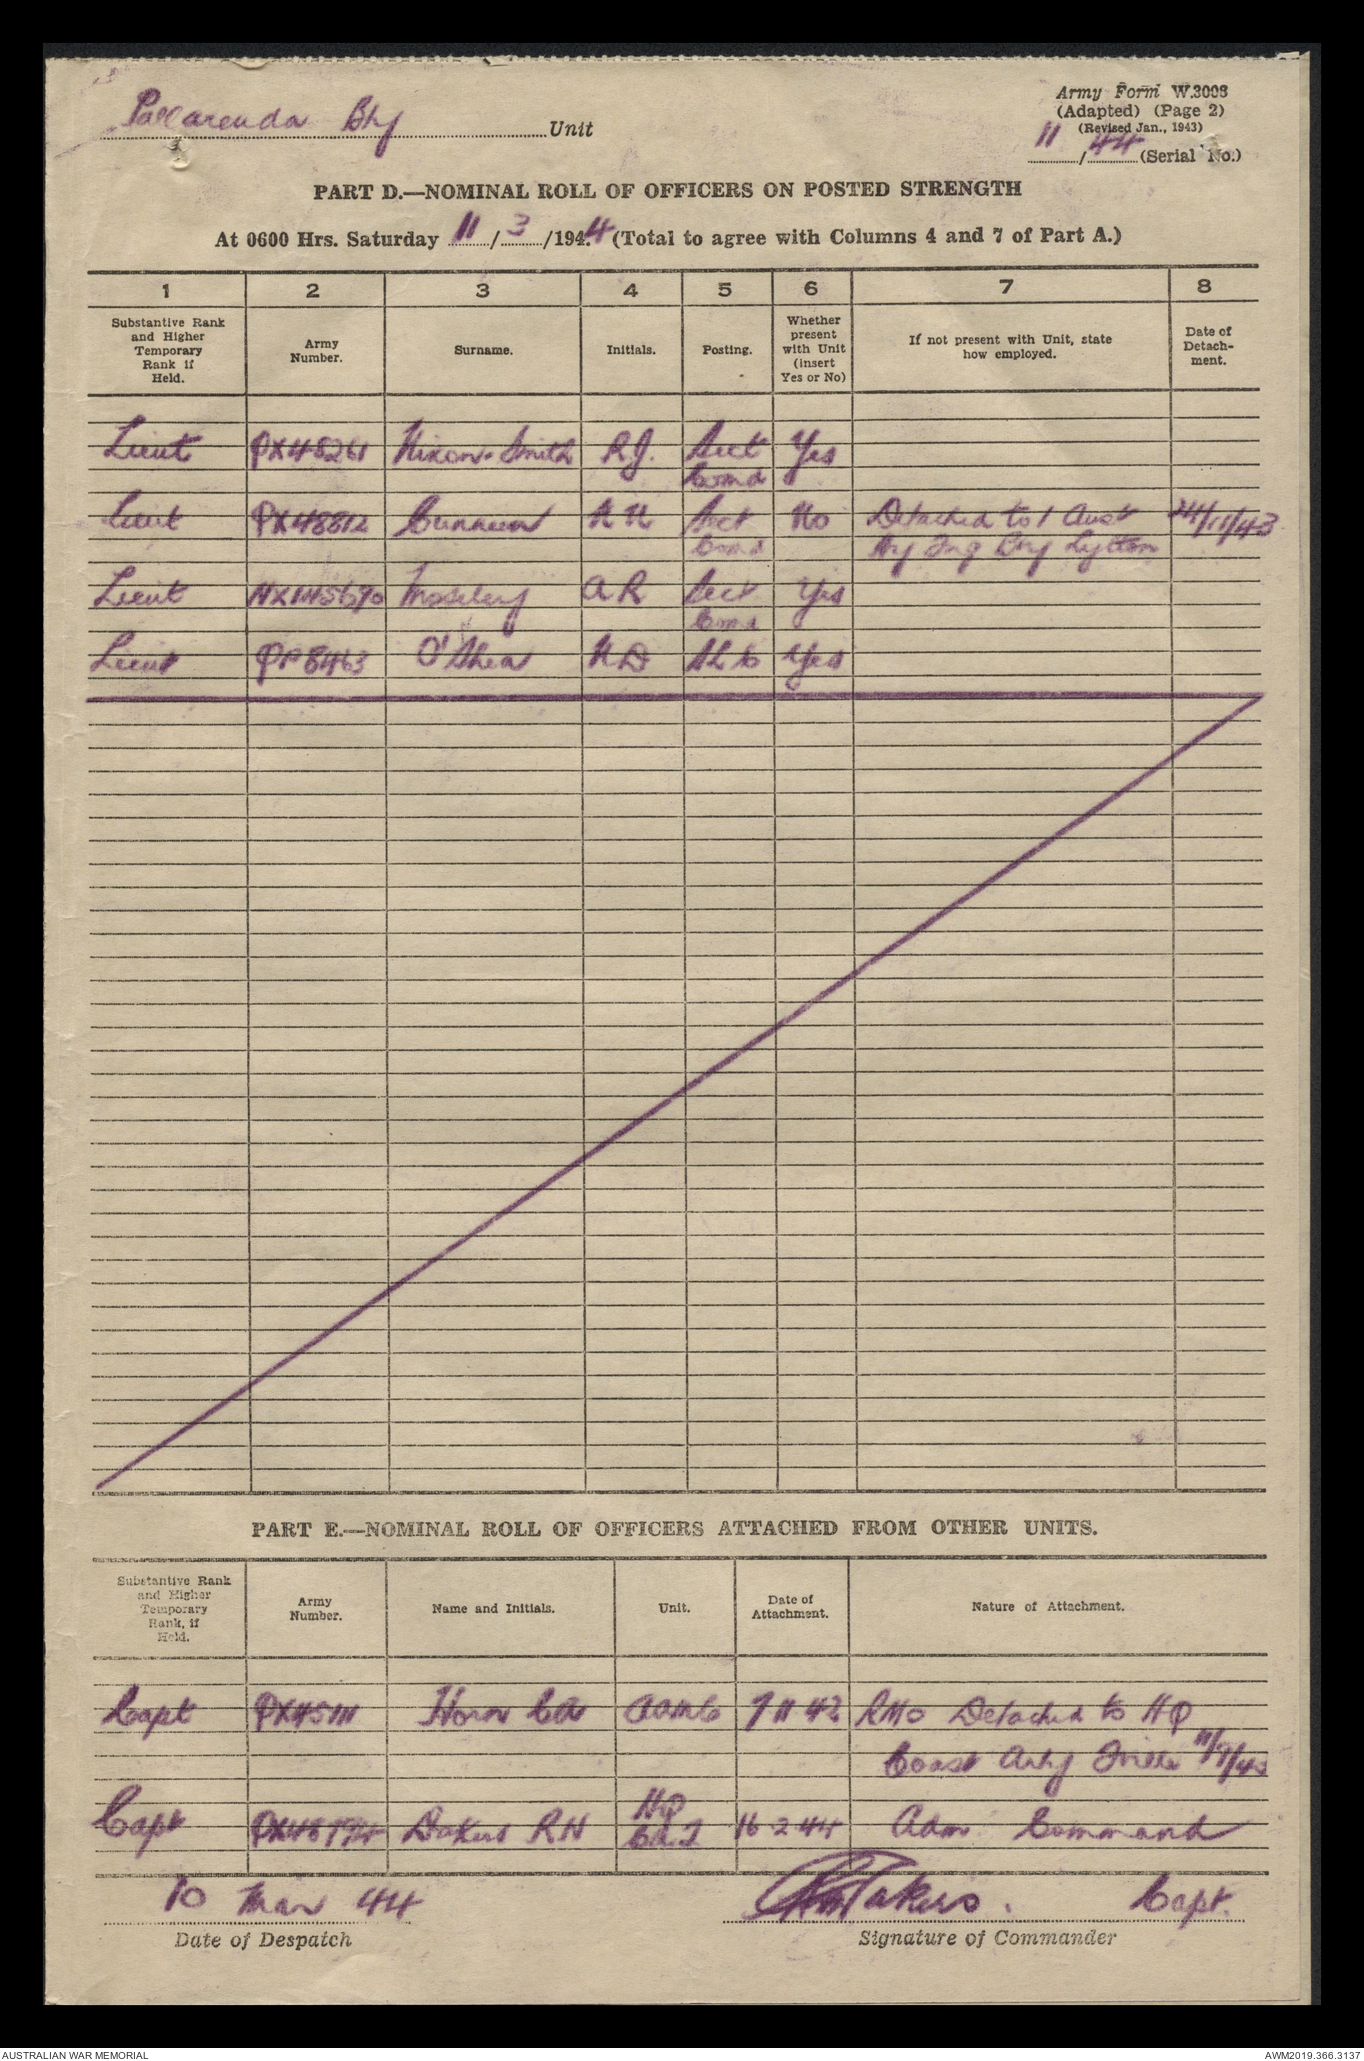 Pallarenda Bty Unit
Army Form W.3008
(Adapted) (Page 2)
(Revised Jan., 1943)
11/44 (Serial No.)
PART D.—NOMINAL ROLL OF OFFICERS ON POSTED STRENGTH
At 0600 Hrs. Saturday 11/3/1944 (Total to agree with Columns 4 and 7 of Part A.)
1 2 3 4 5 6 7 8
Substantive Rank and Higher Temporary Rank if Held. Army Number. Surname. Initials. Posting. Whether present with Unit (insert Yes or No) If not present with Unit, state how employed. Date of Detachment.
Lieut QX48261 Nixon-Smith R.J. Sect Yes
Comd
Lieut QX48812 Sect No Detached to 1 Aust 24/11/43
Comd Bty Lytton
Lieut NX145690 Moseley A R Sect Yes
Comd
Lieut QP8463 O'Shea Yes
PART E.—NOMINAL ROLL OF OFFICERS ATTACHED FROM OTHER UNITS.
Substantive Rank and Higher Temporary Rank, if Held. Army Number. Name and Initials. Unit. Date of Attachment. Nature of Attachment.
Capt Horn CA AAMC 7 11 43 RMO Detached to HQ
Coast Arty
Capt Dakers RH HQ 16 2 44 Adm Command
10 Mar 44 Capt.
Date of Despatch Signature of Commander
AUSTRALIAN WAR MEMORIAL AWM2019.366.3137